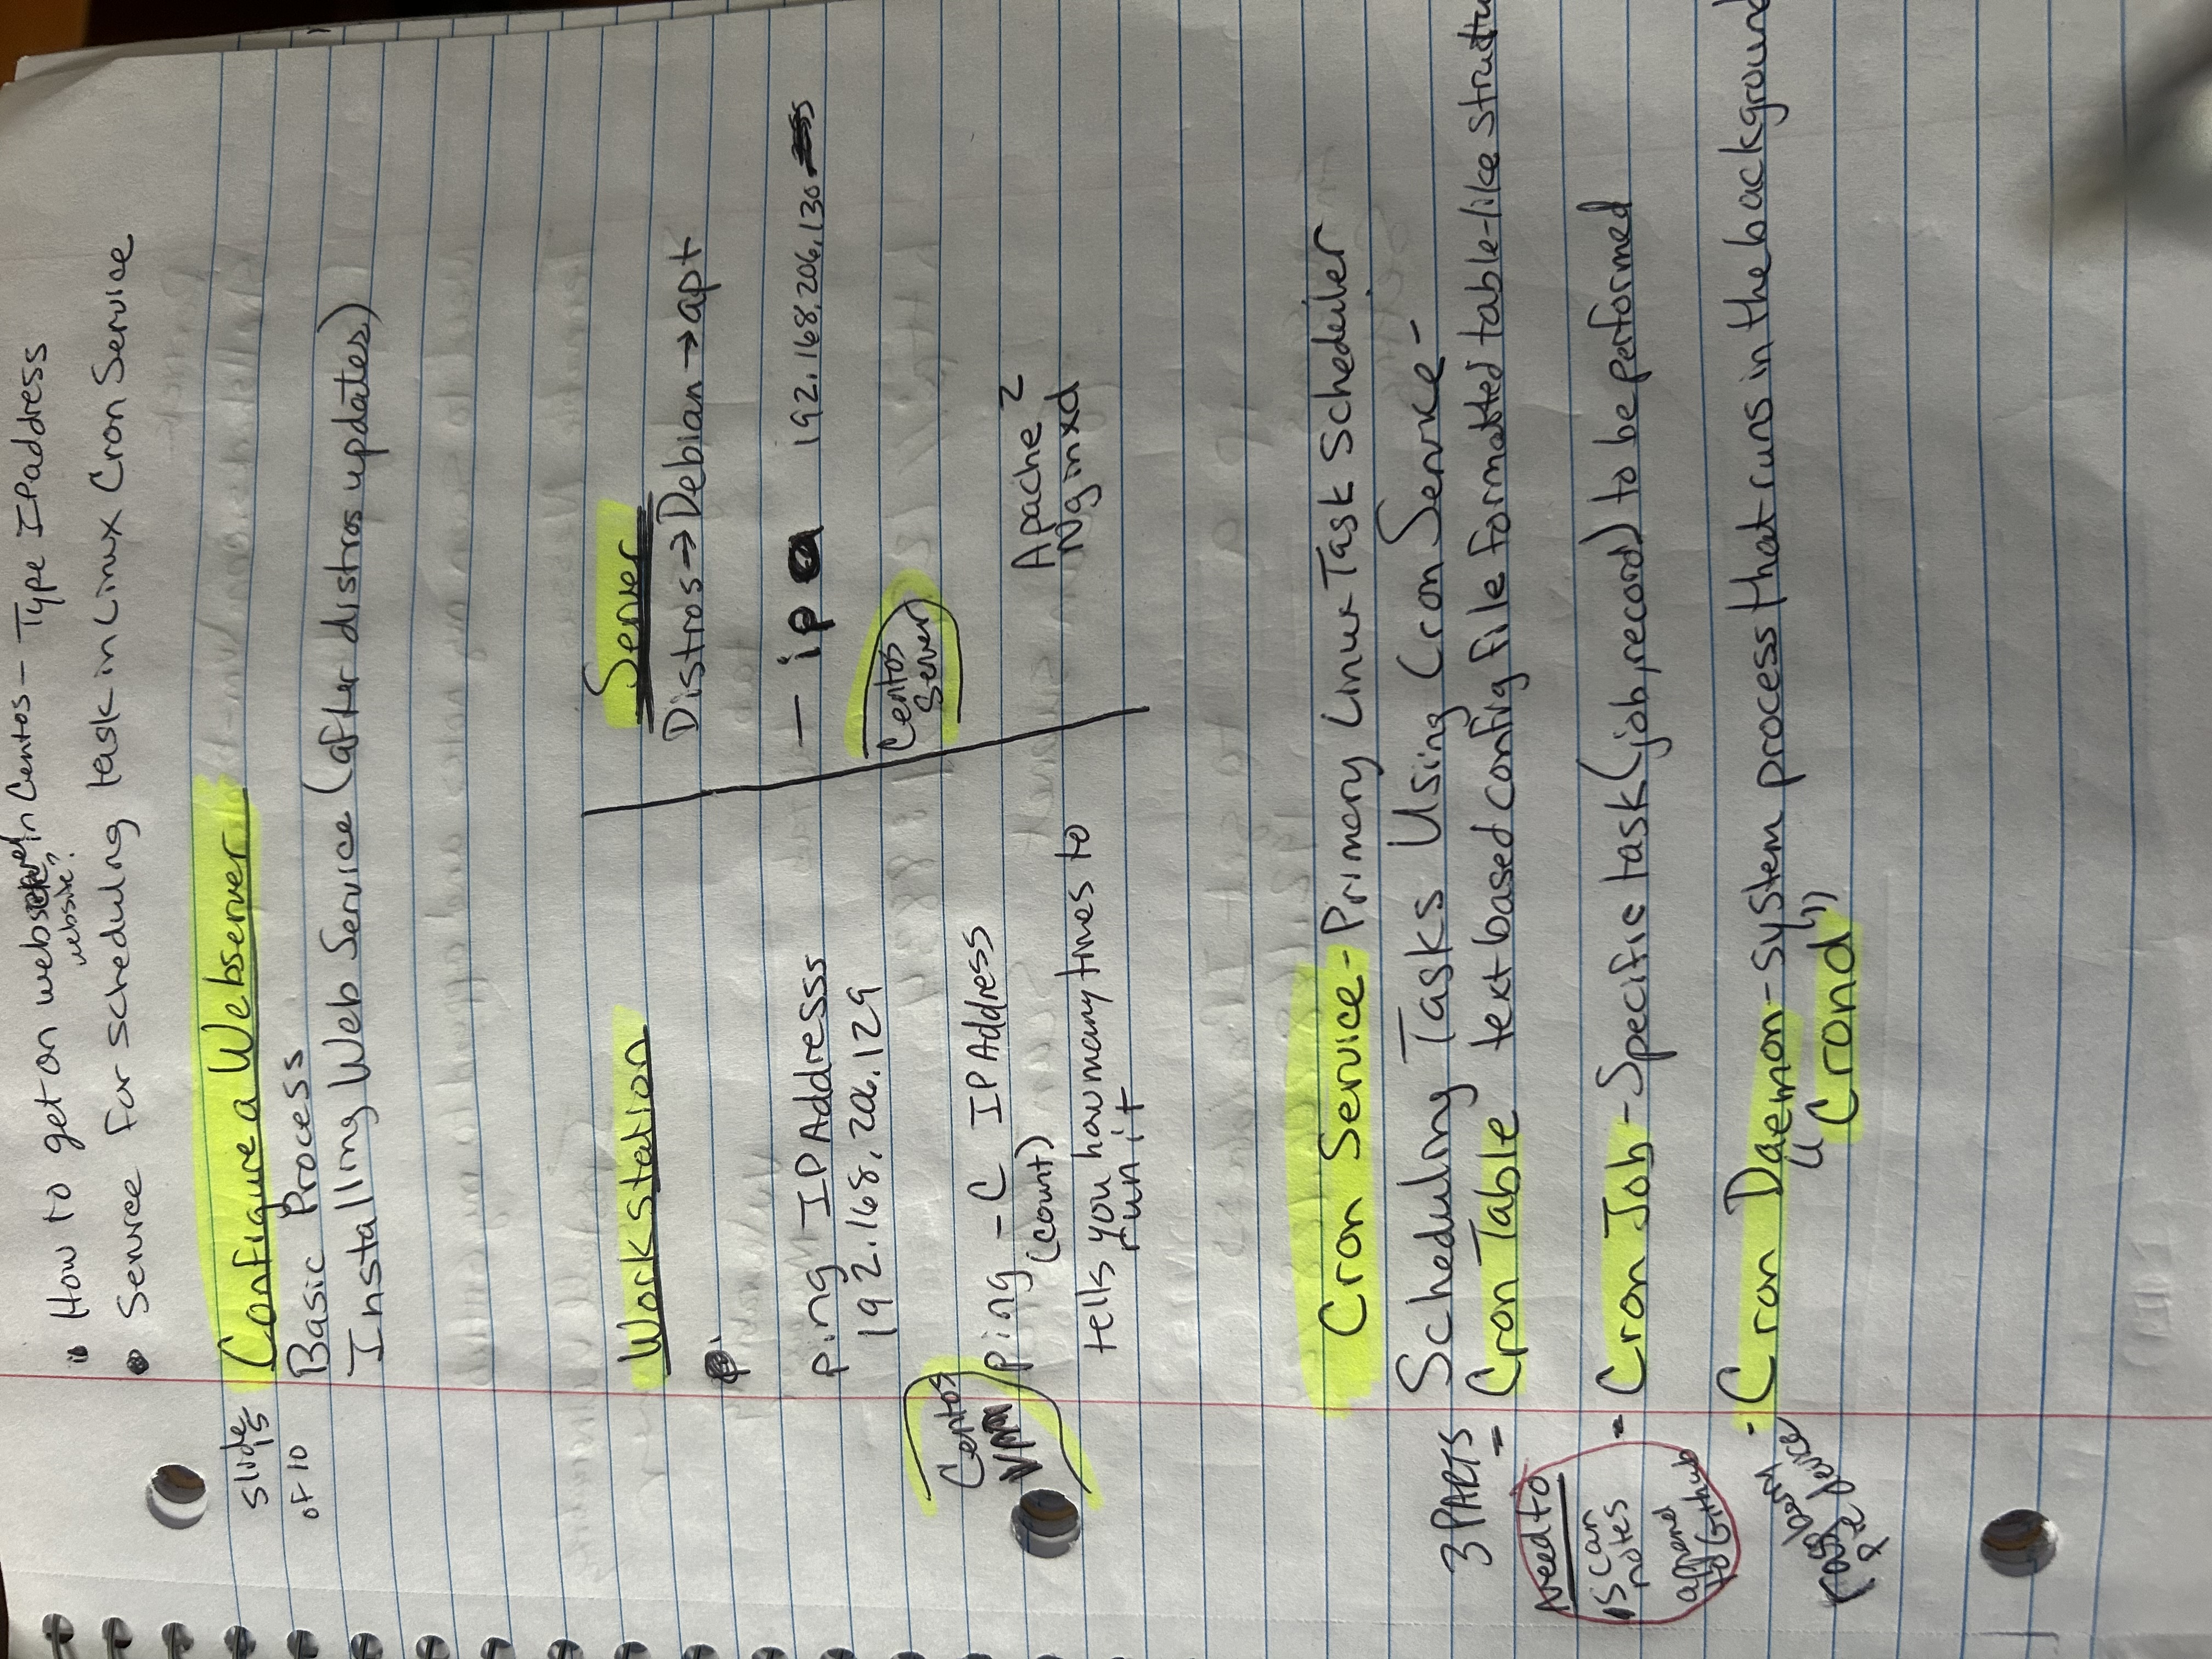 • How to get on webserver in Centos - Type IPaddress
website?
• Service for scheduling task in Linux Cron Service
Slide 15 of 10
Configure a Webserver
Basic Process
Installing Web Service (after distros updates)
Workstation
ping IP Addresss
192.168.206.129
Centos VM
ping -C IP Address
(count)
tells you how many times to
run it
Server
Distros → Debian → apt
- ip a 192.168.206.130
Centos
Server
Apache 2
Nginxd
Cron Service - Primary Linux Task Scheduler
3 PARTS
Scheduling Tasks Using Cron Service -
- Cron Table text based config file formatted table-like structu
Need to
scan
notes
append
to Github
- Cron Job - Specific task (job, record) to be performed
raspberry
pie device
- Cron Daemon - system process that runs in the background
"Crond"